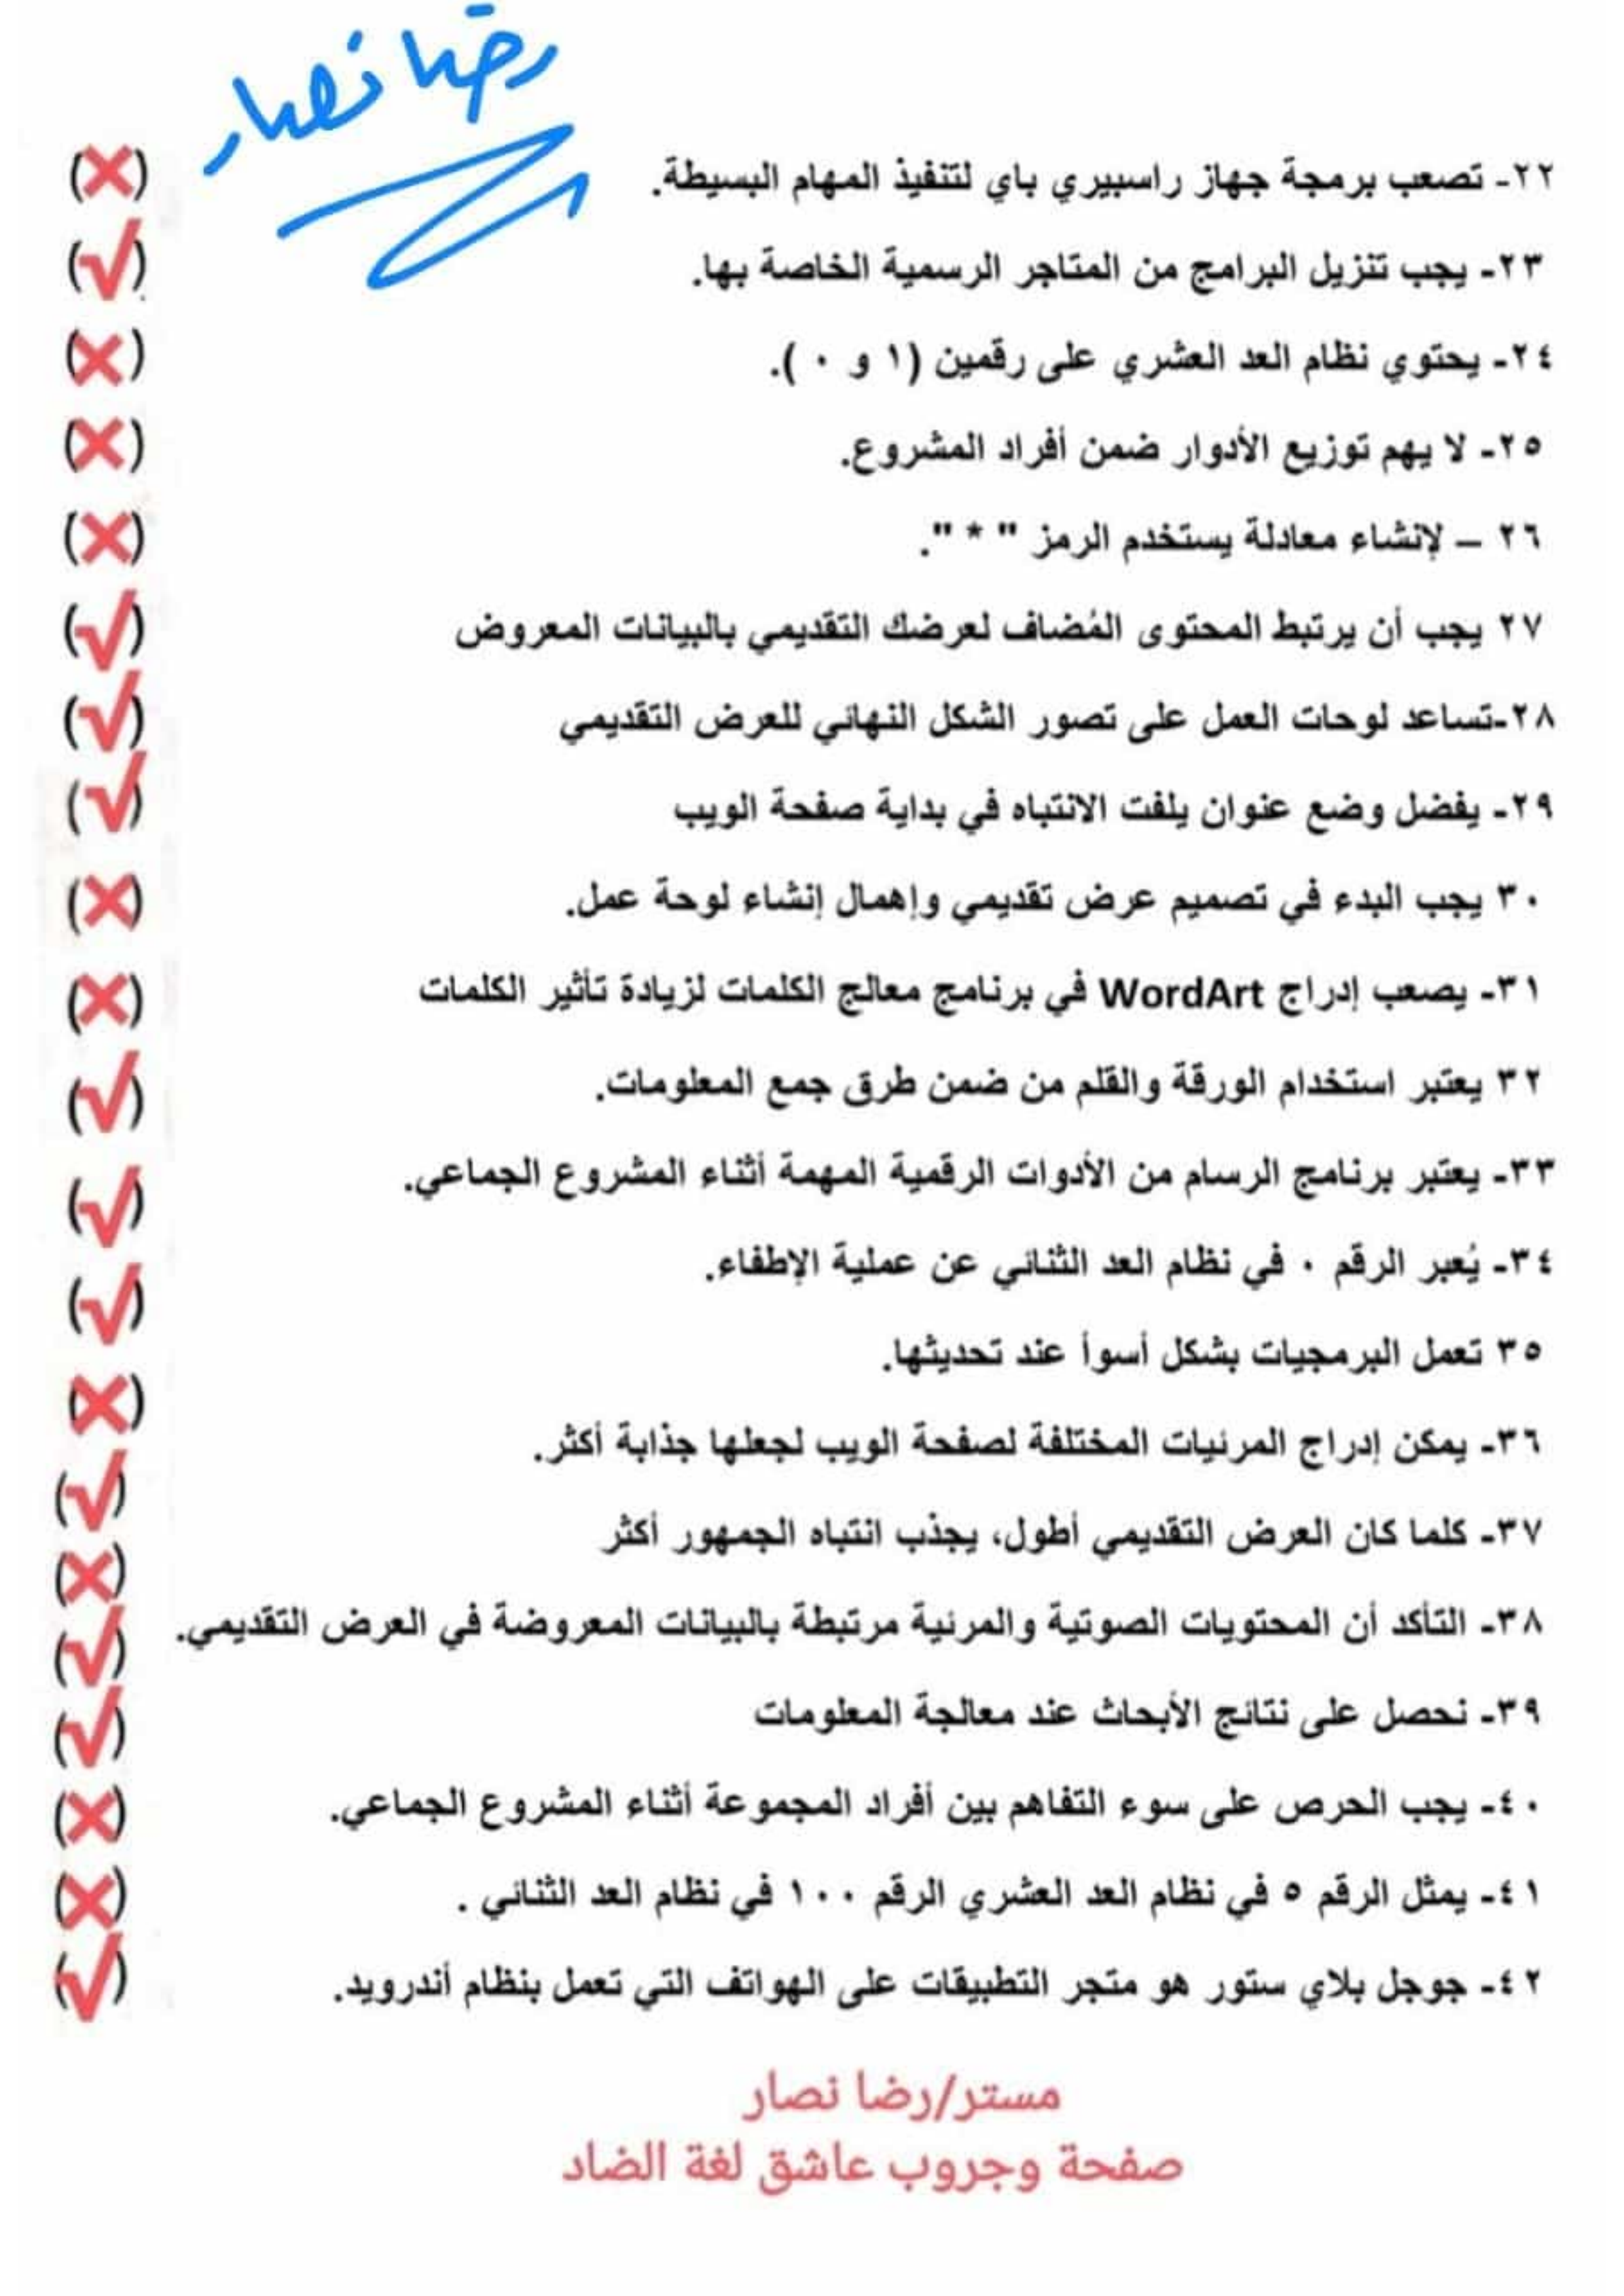 رضا نصار
٢٢- تصعب برمجة جهاز راسبيري باي لتنفيذ المهام البسيطة. (✗)
٢٣- يجب تنزيل البرامج من المتاجر الرسمية الخاصة بها. (√)
٢٤- يحتوي نظام العد العشري على رقمين (١ و ٠ ). (✗)
٢٥- لا يهم توزيع الأدوار ضمن أفراد المشروع. (✗)
٢٦ – لإنشاء معادلة يستخدم الرمز " * ". (✗)
٢٧ يجب أن يرتبط المحتوى المُضاف لعرضك التقديمي بالبيانات المعروض (√)
٢٨-تساعد لوحات العمل على تصور الشكل النهائي للعرض التقديمي (√)
٢٩- يفضل وضع عنوان يلفت الانتباه في بداية صفحة الويب (√)
٣٠ يجب البدء في تصميم عرض تقديمي وإهمال إنشاء لوحة عمل. (✗)
٣١- يصعب إدراج WordArt في برنامج معالج الكلمات لزيادة تأثير الكلمات (✗)
٣٢ يعتبر استخدام الورقة والقلم من ضمن طرق جمع المعلومات. (√)
٣٣- يعتبر برنامج الرسام من الأدوات الرقمية المهمة أثناء المشروع الجماعي. (√)
٣٤- يُعبر الرقم ٠ في نظام العد الثنائي عن عملية الإطفاء. (√)
٣٥ تعمل البرمجيات بشكل أسوأ عند تحديثها. (✗)
٣٦- يمكن إدراج المرئيات المختلفة لصفحة الويب لجعلها جذابة أكثر. (√)
٣٧- كلما كان العرض التقديمي أطول، يجذب انتباه الجمهور أكثر (✗)
٣٨- التأكد أن المحتويات الصوتية والمرئية مرتبطة بالبيانات المعروضة في العرض التقديمي. (√)
٣٩- نحصل على نتائج الأبحاث عند معالجة المعلومات (√)
٤٠- يجب الحرص على سوء التفاهم بين أفراد المجموعة أثناء المشروع الجماعي. (✗)
٤١- يمثل الرقم ٥ في نظام العد العشري الرقم ١٠٠ في نظام العد الثنائي . (✗)
٤٢- جوجل بلاي ستور هو متجر التطبيقات على الهواتف التي تعمل بنظام أندرويد. (√)
مستر/رضا نصار
صفحة وجروب عاشق لغة الضاد